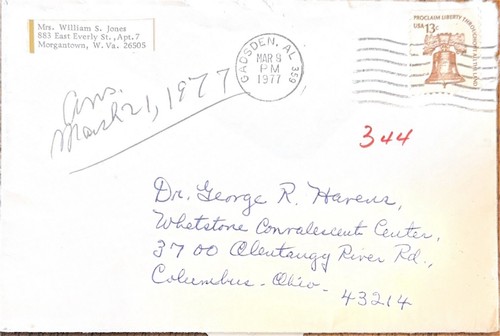 Mrs. William S. Jones
883 East Everly St., Apt.7
Morgantown, W. Va. 26505
GADSDEN, AL 359
MAR 8
PM
1977
PROCLAIM LIBERTY THROUGHOUT ALL THE LAND
USA 13c
Ans.
March 21, 1977
344
Dr. George R. Havens,
Whetstone Convalescent Center,
3700 Olentangy River Rd.,
Columbus - Ohio -
43214